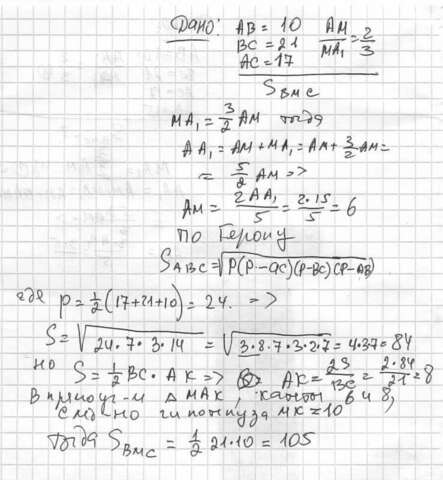 Дано: AB = 10 AM/MA₁ = 2/3
BC = 21
AC = 17
S BMC
MA₁ = 3/2 AM тогда
AA₁ = AM + MA₁ = AM + 3/2 AM =
= 5/2 AM =>
AM = 2AA₁/5 = 2·15/5 = 6
по Герону
S ABC = √P(P-AC)(P-BC)(P-AB)
где P = 1/2(17+21+10) = 24. =>
S = √24·7·3·14 = √3·8·7·3·2·7 = 4·3·7 = 84
но S = 1/2 BC·AK => AK = 2S/BC = 2·84/21 = 8
В прямоуг-м △ MAK, катеты 6 и 8,
гипотенуза MK = 10
тогда S BMC = 1/2 21·10 = 105